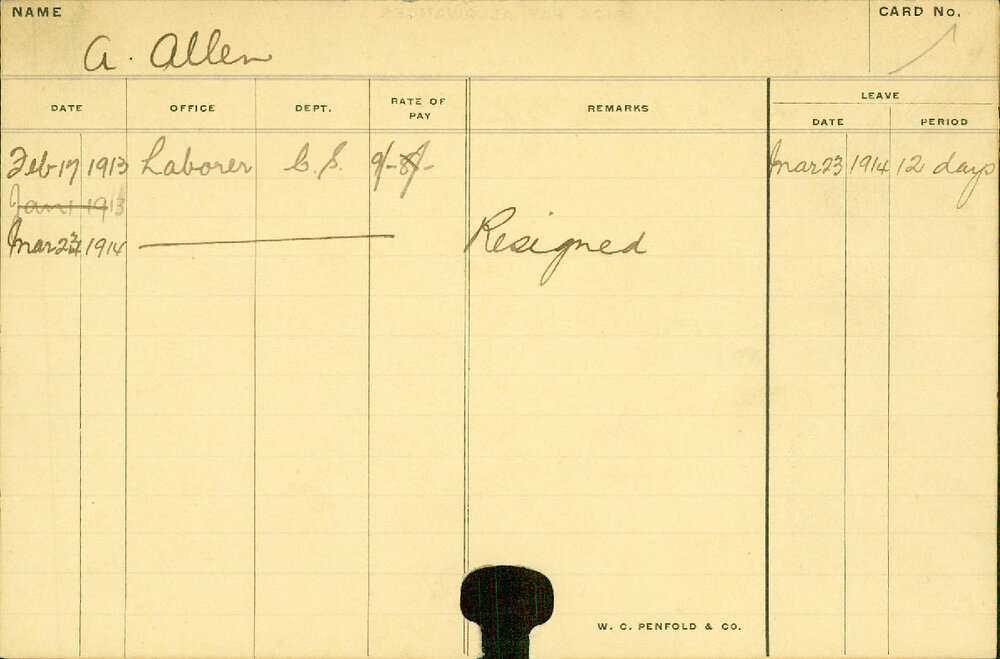 NAME
CARD No.
A. Allen
DATE OFFICE DEPT. RATE OF PAY REMARKS LEAVE
DATE PERIOD
Feb 17 1913 Laborer C.S. 9/- 8/- Mar 23 1914 12 days
Jan 1 1913
Mar 23 1914 Resigned
W. C. PENFOLD & CO.